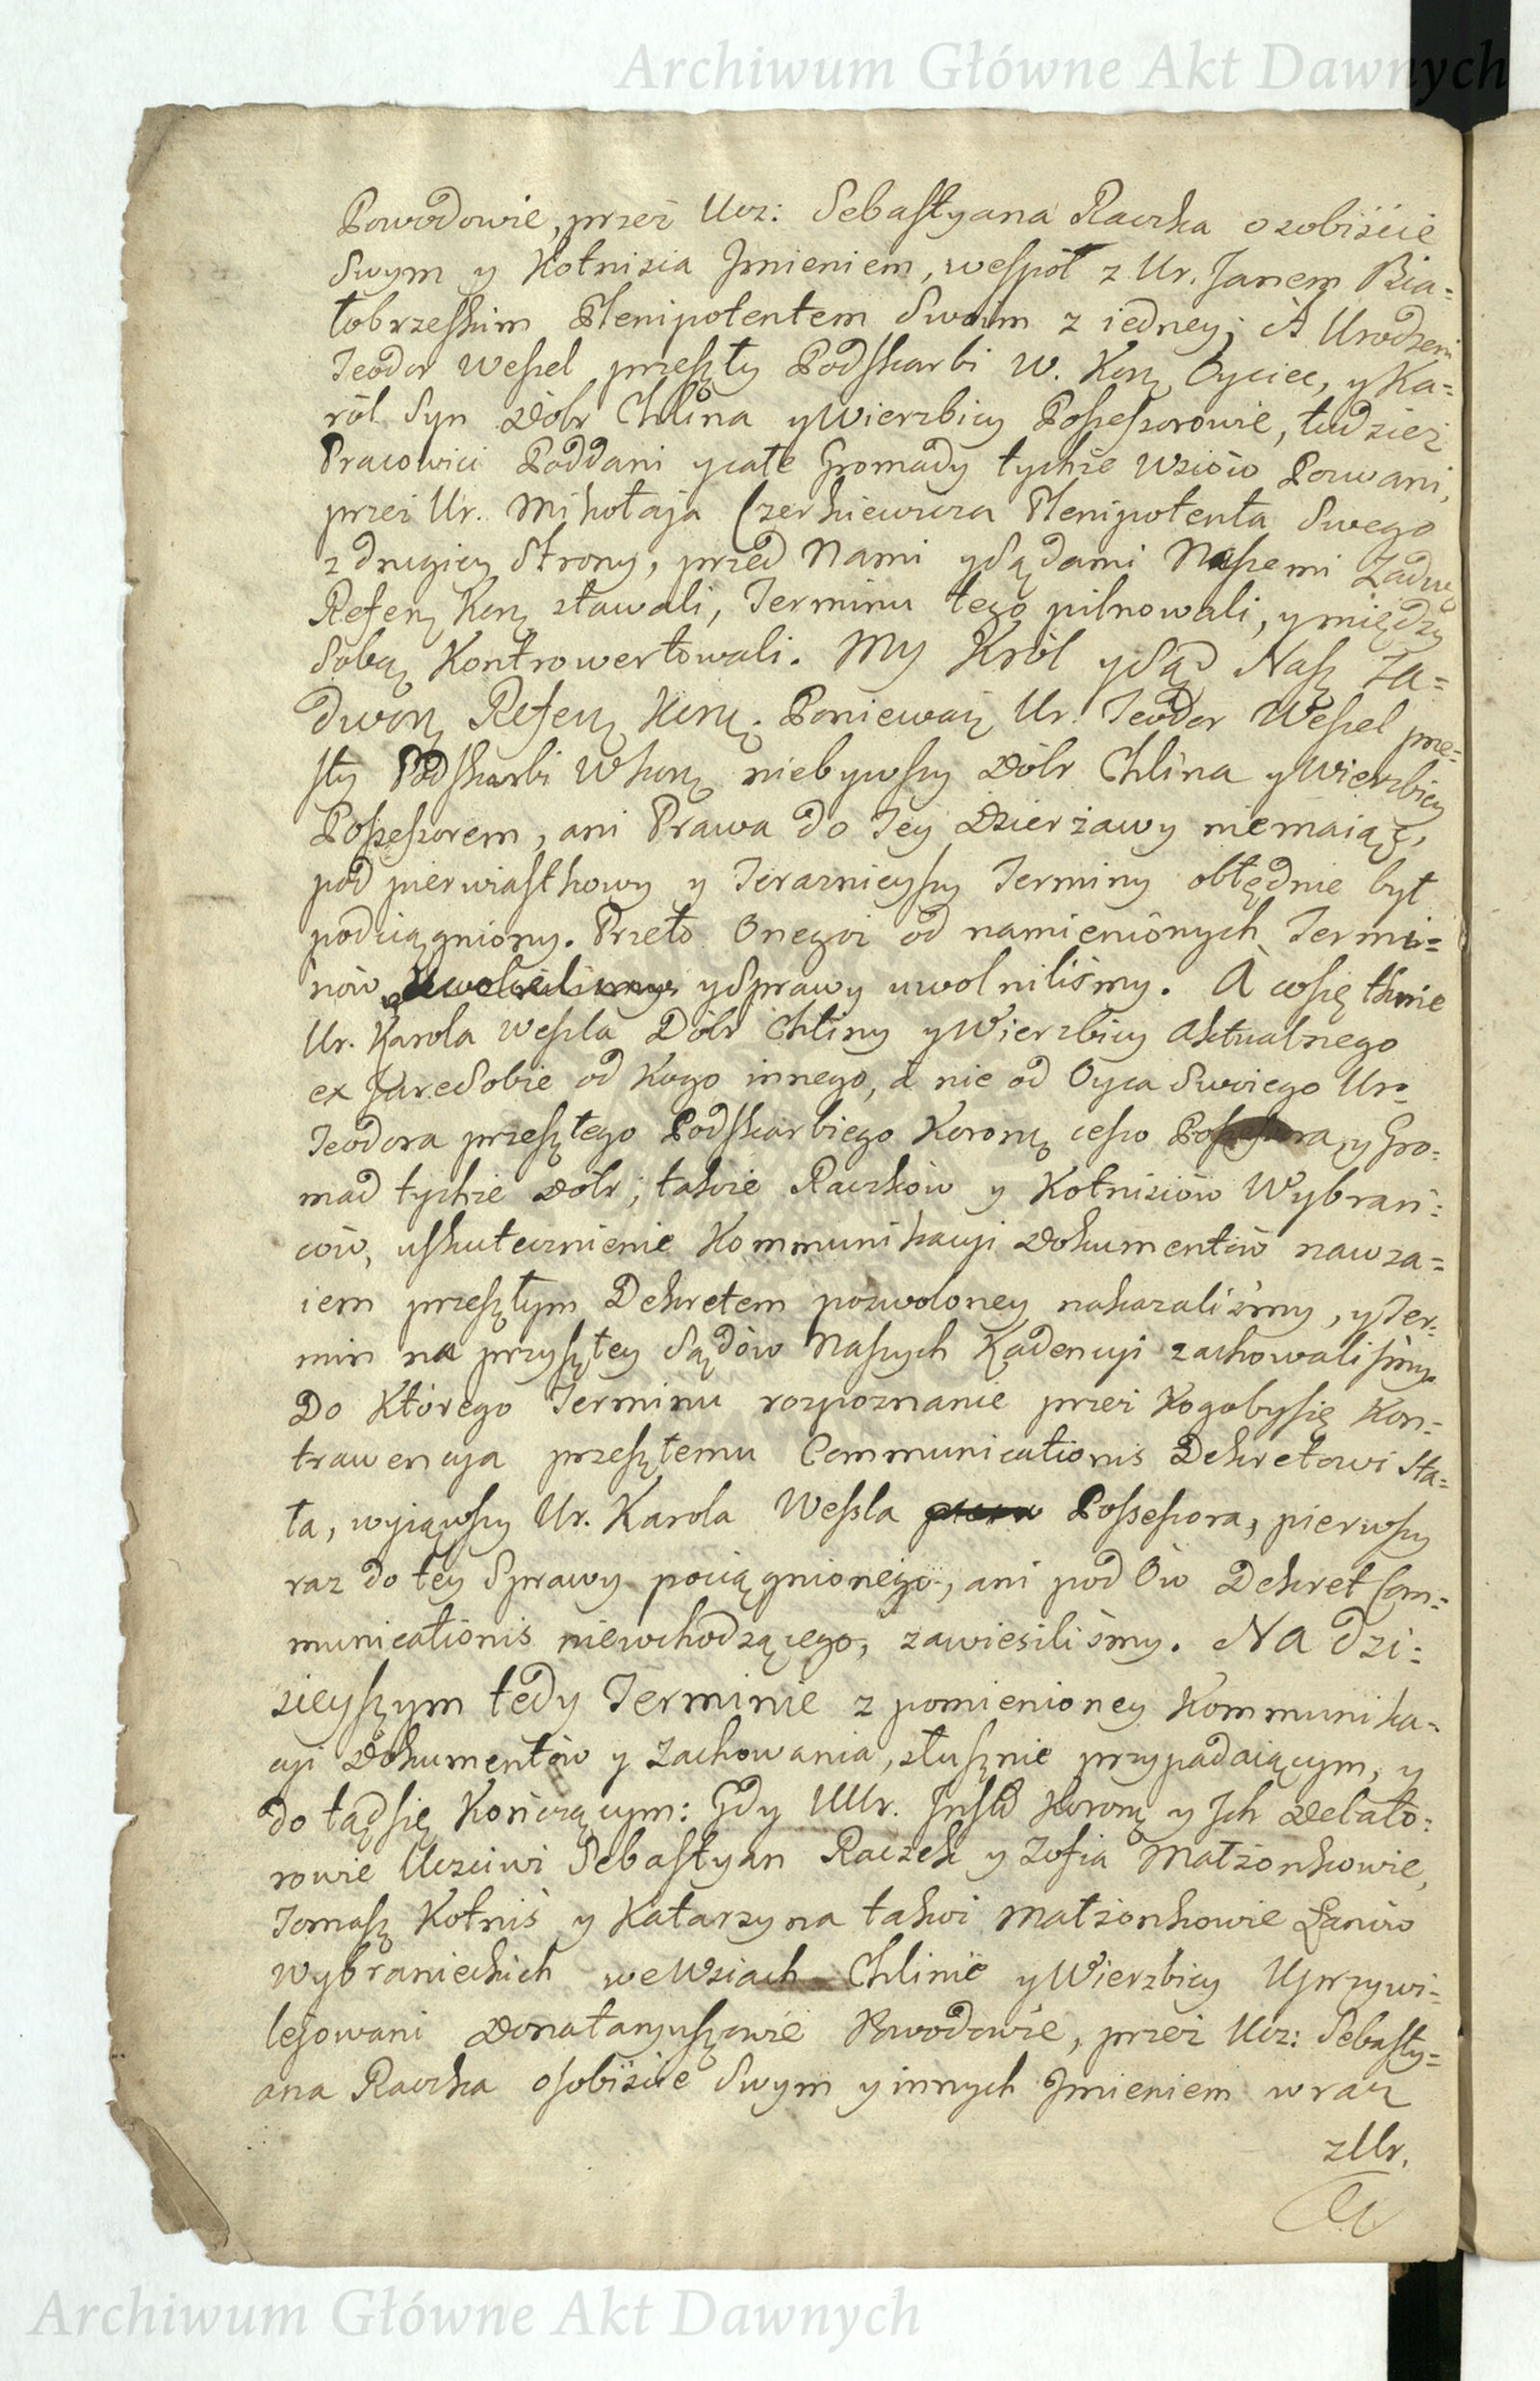 Archiwum Główne Akt Dawnych
Powodowie, przez Ucz: Sebastyana Raczka osobiście
Swym y Kotnisia Jmieniem, wespół z Ur. Janem Bia-
łobrzeskim Plenipotentem Swoim z iedney; A Urodzeni
Teodor Wessel przeszły Podskarbi W. Kor: Oyciec, y Ka-
rol Syn Dóbr Chlina y Wierzbicy Possessorowie, tudzież
Pracowici Poddani y całe Gromady tychże Wsiów Pozwani,
przez Ur. Mikołaja Czerkiewicza Plenipotenta Swego
z drugiey Strony, przed Nami y Sądami Naszemi Zadw:
Refer: Kor: stawali, Terminu tego pilnowali, y między
Sobą Kontrowertowali. My Król y Sąd Nasz Za-
dwor: Refer: Kor: Ponieważ Ur. Teodor Wessel prze-
szły Podskarbi W Kor: niebywszy Dóbr Chlina y Wierzbicy
Possessorem, ani Prawa do Tey Dzierżawy niemaiąc,
pod pierwiastkowy y Teraznieyszy Terminy obłędnie był
podciągniony. Przeto Onegoż od namienionych Termi-
nów y Sprawy uwolniliśmy. A co się tknie
Ur. Karola Wessla Dóbr Chliny y Wierzbicy Aktualnego
ex Jure Sobie od Kogo innego, a nie od Oyca Swoiego Ur-
Teodora przeszłego Podskarbiego Koron: cesso Possessora, y Gro-
mad tychże Dóbr; także Raczków y Kotnisiów Wybrań-
ców, uskutecznienie Kommunikacyi Dokumentów nawza-
iem przeszłym Dekretem pozwoloney nakazaliśmy, y Ter-
min na przyszłey Sądów Naszych Kadencyi zachowaliśmy.
Do Którego Terminu rozpoznanie przez Kogoby się Kon-
trawencya przeszłemu Communicationis Dekretowi sta-
ła, wyiąwszy Ur. Karola Wessla Possessora, pierwszy
raz do tey Sprawy pociągnionego, ani pod Ów Dekret Com-
municationis niewchodzącego, zawiesiliśmy. Na dzi-
sieyszym tedy Terminie z pomienioney Kommunika-
cyi Dokumentów y Zachowania, słusznie przypadaiącym, y
dotąd się Kończącym: Gdy UUr. Insty Koron: y Jch Delato-
rowie Uczciwi Sebastyan Raczek y Zofia Małżonkowie,
Tomasz Kotniś y Katarzyna takoż Małżonkowie Łanów
Wybranieckich we Wsiach Chlinie y Wierzbicy Uprzywi-
lejowani Donataryuszowie Powodowie, przez Ucz: Sebasty-
ana Raczka osobiście Swym y innych Jmieniem wraz
z Ur.
Archiwum Główne Akt Dawnych